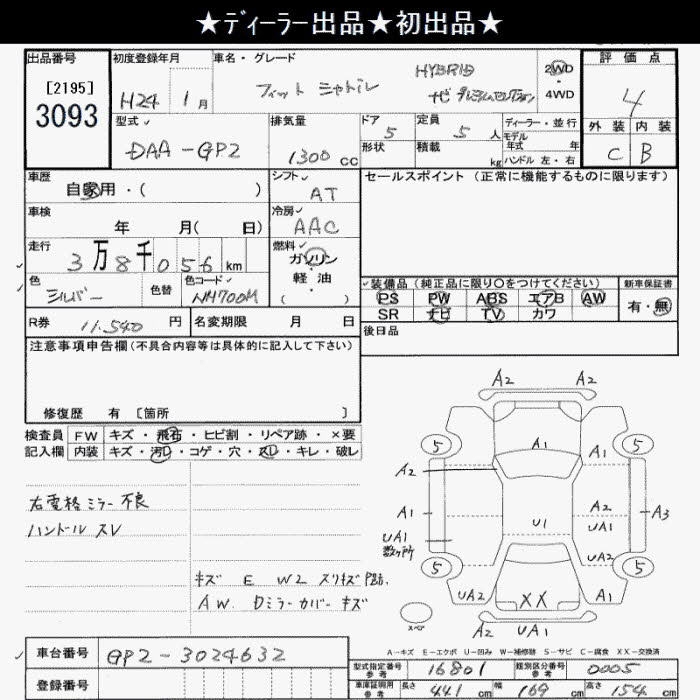 ★ディーラー出品★初出品★
出品番号 初度登録年月 車名・グレード 評価点
[2195] 3093
H24 1月 フィット シャトル HYBRID ナビプレミアムセレクション 2WD 4WD
4
型式 排気量 ドア 定員 ディーラー・並行
DAA-GP2 1300cc 5 5人 モデル年式 年
形状 積載 kg ハンドル 左・右
外装 内装
C B
車歴 シフト セールスポイント(正常に機能するものに限ります)
自家用・( ) AT
車検 冷房
年 月( 日) AAC
走行 燃料
3万8千056km ガソリン・軽油 ( )
色 色替 色コード
シルバー NH700M
装備品(純正品に限り○をつけてください) 新車保証書
PS PW ABS エアB AW 有・無
SR ナビ TV カワ
R券 11.540円 名変期限 月 日
後日品
注意事項申告欄(不具合内容等は具体的に記入して下さい)
修復歴 有 [箇所 ]
検査員 FW キズ・飛石・ヒビ割・リペア跡・×要
記入欄 内装 キズ・汚レ・コゲ・穴・スレ・キレ・破レ
右電格ミラー不良
ハンドルスレ
キズ E W2 スリキズ
AW. Dミラーカバーキズ
A2 A2
A1
5 5
A2 A1
A1 A2 A3
U1 UA1
UA1 数ヶ所
UA2
5 5
UA2 XX A1
スペア
A2 UA1
A-キズ E-エクボ U-凹み W-補修跡 S-サビ C-腐食 XX-交換済
車台番号 GP2-3024632
登録番号
型式指定番号 参考 16801 類別区分番号 参考 0005
車庫証明用 参考 長さ 441cm 幅 169cm 高さ 154cm